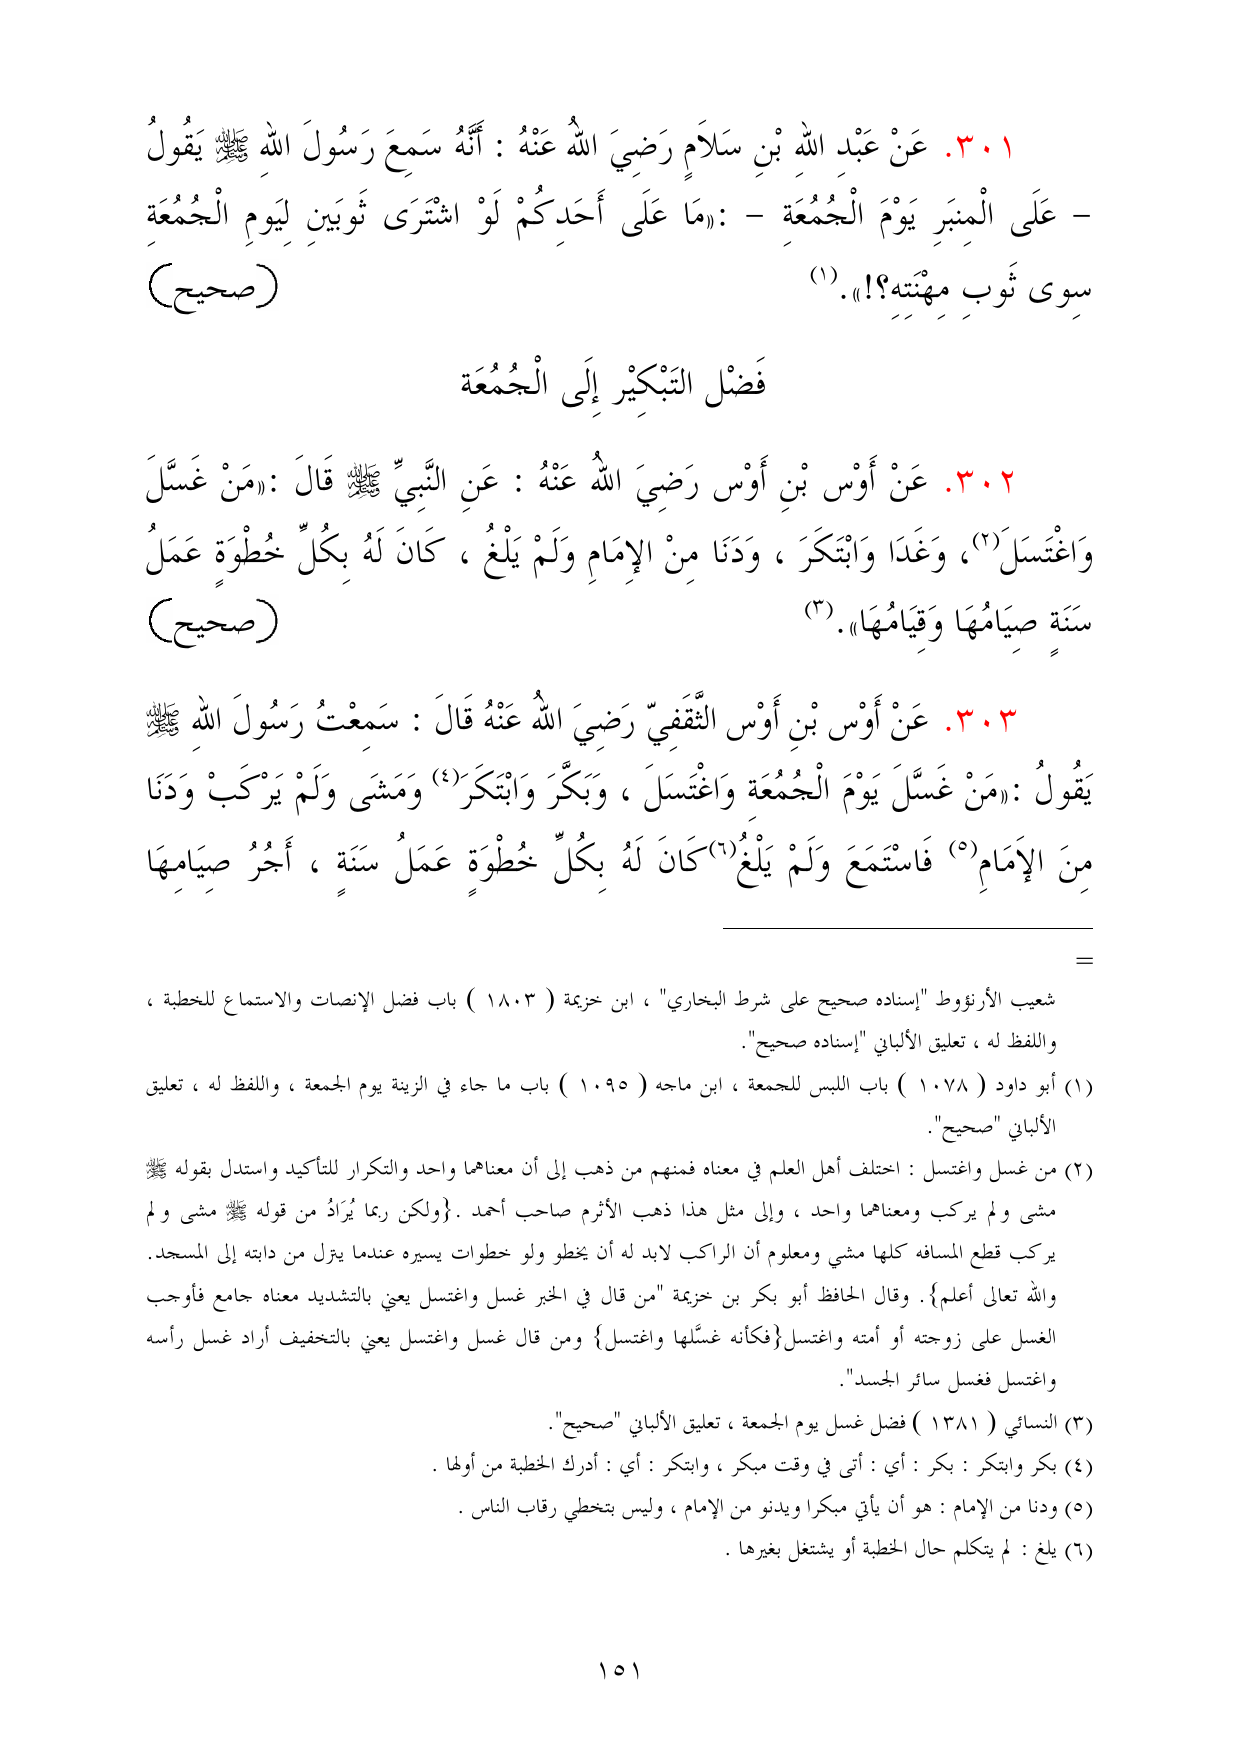 ٣٠١. عَنْ عَبْدِ اللهِ بْنِ سَلاَمٍ رَضِيَ اللهُ عَنْهُ : أَنَّهُ سَمِعَ رَسُولَ اللهِ ﷺ يَقُولُ
– عَلَى الْمِنبَرِ يَوْمَ الْجُمُعَةِ – :«مَا عَلَى أَحَدِكُمْ لَوْ اشْتَرَى ثَوبَينِ لِيَومِ الْجُمُعَةِ
سِوى ثَوبِ مِهْنَتِهِ؟!».(١) (صحيح)
فَضْل التَبْكِيْر إِلَى الْجُمُعَة
٣٠٢. عَنْ أَوْس بْنِ أَوْس رَضِيَ اللهُ عَنْهُ : عَنِ النَّبِيِّ ﷺ قَالَ :«مَنْ غَسَّلَ
وَاغْتَسَلَ(٢)، وَغَدَا وَابْتَكَرَ ، وَدَنَا مِنْ الإِمَامِ وَلَمْ يَلْغُ ، كَانَ لَهُ بِكُلِّ خُطْوَةٍ عَمَلُ
سَنَةٍ صِيَامُهَا وَقِيَامُهَا».(٣) (صحيح)
٣٠٣. عَنْ أَوْس بْنِ أَوْس الثَّقَفِيّ رَضِيَ اللهُ عَنْهُ قَالَ : سَمِعْتُ رَسُولَ اللهِ ﷺ
يَقُولُ :«مَنْ غَسَّلَ يَوْمَ الْجُمُعَةِ وَاغْتَسَلَ ، وَبَكَّرَ وَابْتَكَرَ(٤) وَمَشَى وَلَمْ يَرْكَبْ وَدَنَا
مِنَ الإَمَامِ(٥) فَاسْتَمَعَ وَلَمْ يَلْغُ(٦)كَانَ لَهُ بِكُلِّ خُطْوَةٍ عَمَلُ سَنَةٍ ، أَجُرُ صِيَامِهَا
=
شعيب الأرنؤوط "إسناده صحيح على شرط البخاري" ، ابن خزيمة ( ١٨٠٣ ) باب فضل الإنصات والاستماع للخطبة ،
واللفظ له ، تعليق الألباني "إسناده صحيح".
(١) أبو داود ( ١٠٧٨ ) باب اللبس للجمعة ، ابن ماجه ( ١٠٩٥ ) باب ما جاء في الزينة يوم الجمعة ، واللفظ له ، تعليق
الألباني "صحيح".
(٢) من غسل واغتسل : اختلف أهل العلم في معناه فمنهم من ذهب إلى أن معناهما واحد والتكرار للتأكيد واستدل بقوله ﷺ
مشى ولم يركب ومعناهما واحد ، وإلى مثل هذا ذهب الأثرم صاحب أحمد .{ولكن ربما يُرَادُ من قوله ﷺ مشى ولم
يركب قطع المسافه كلها مشي ومعلوم أن الراكب لابد له أن يخطو ولو خطوات يسيره عندما ينزل من دابته إلى المسجد.
والله تعالى أعلم}. وقال الحافظ أبو بكر بن خزيمة "من قال في الخبر غسل واغتسل يعني بالتشديد معناه جامع فأوجب
الغسل على زوجته أو أمته واغتسل{فكأنه غسَّلها واغتسل} ومن قال غسل واغتسل يعني بالتخفيف أراد غسل رأسه
واغتسل فغسل سائر الجسد".
(٣) النسائي ( ١٣٨١ ) فضل غسل يوم الجمعة ، تعليق الألباني "صحيح".
(٤) بكر وابتكر : بكر : أي : أتى في وقت مبكر ، وابتكر : أي : أدرك الخطبة من أولها .
(٥) ودنا من الإمام : هو أن يأتي مبكرا ويدنو من الإمام ، وليس بتخطي رقاب الناس .
(٦) يلغ : لم يتكلم حال الخطبة أو يشتغل بغيرها .
١٥١